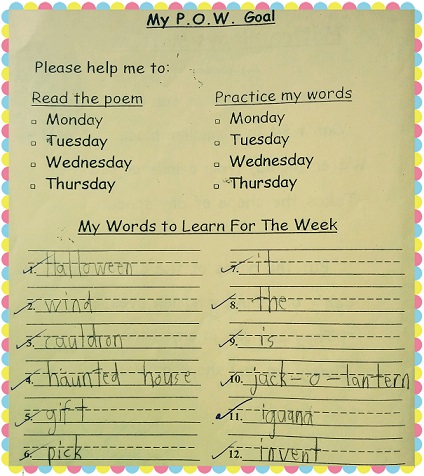 My P.O.W. Goal
Please help me to:
Read the poem
Monday
Tuesday
Wednesday
Thursday
Practice my words
Monday
Tuesday
Wednesday
Thursday
My Words to Learn For The Week
1. Halloween
2. wind
3. cauldron
4. haunted house
5. gift
6. pick
7. it
8. the
9. is
10. jack-o-lantern
11. iguana
12. invent